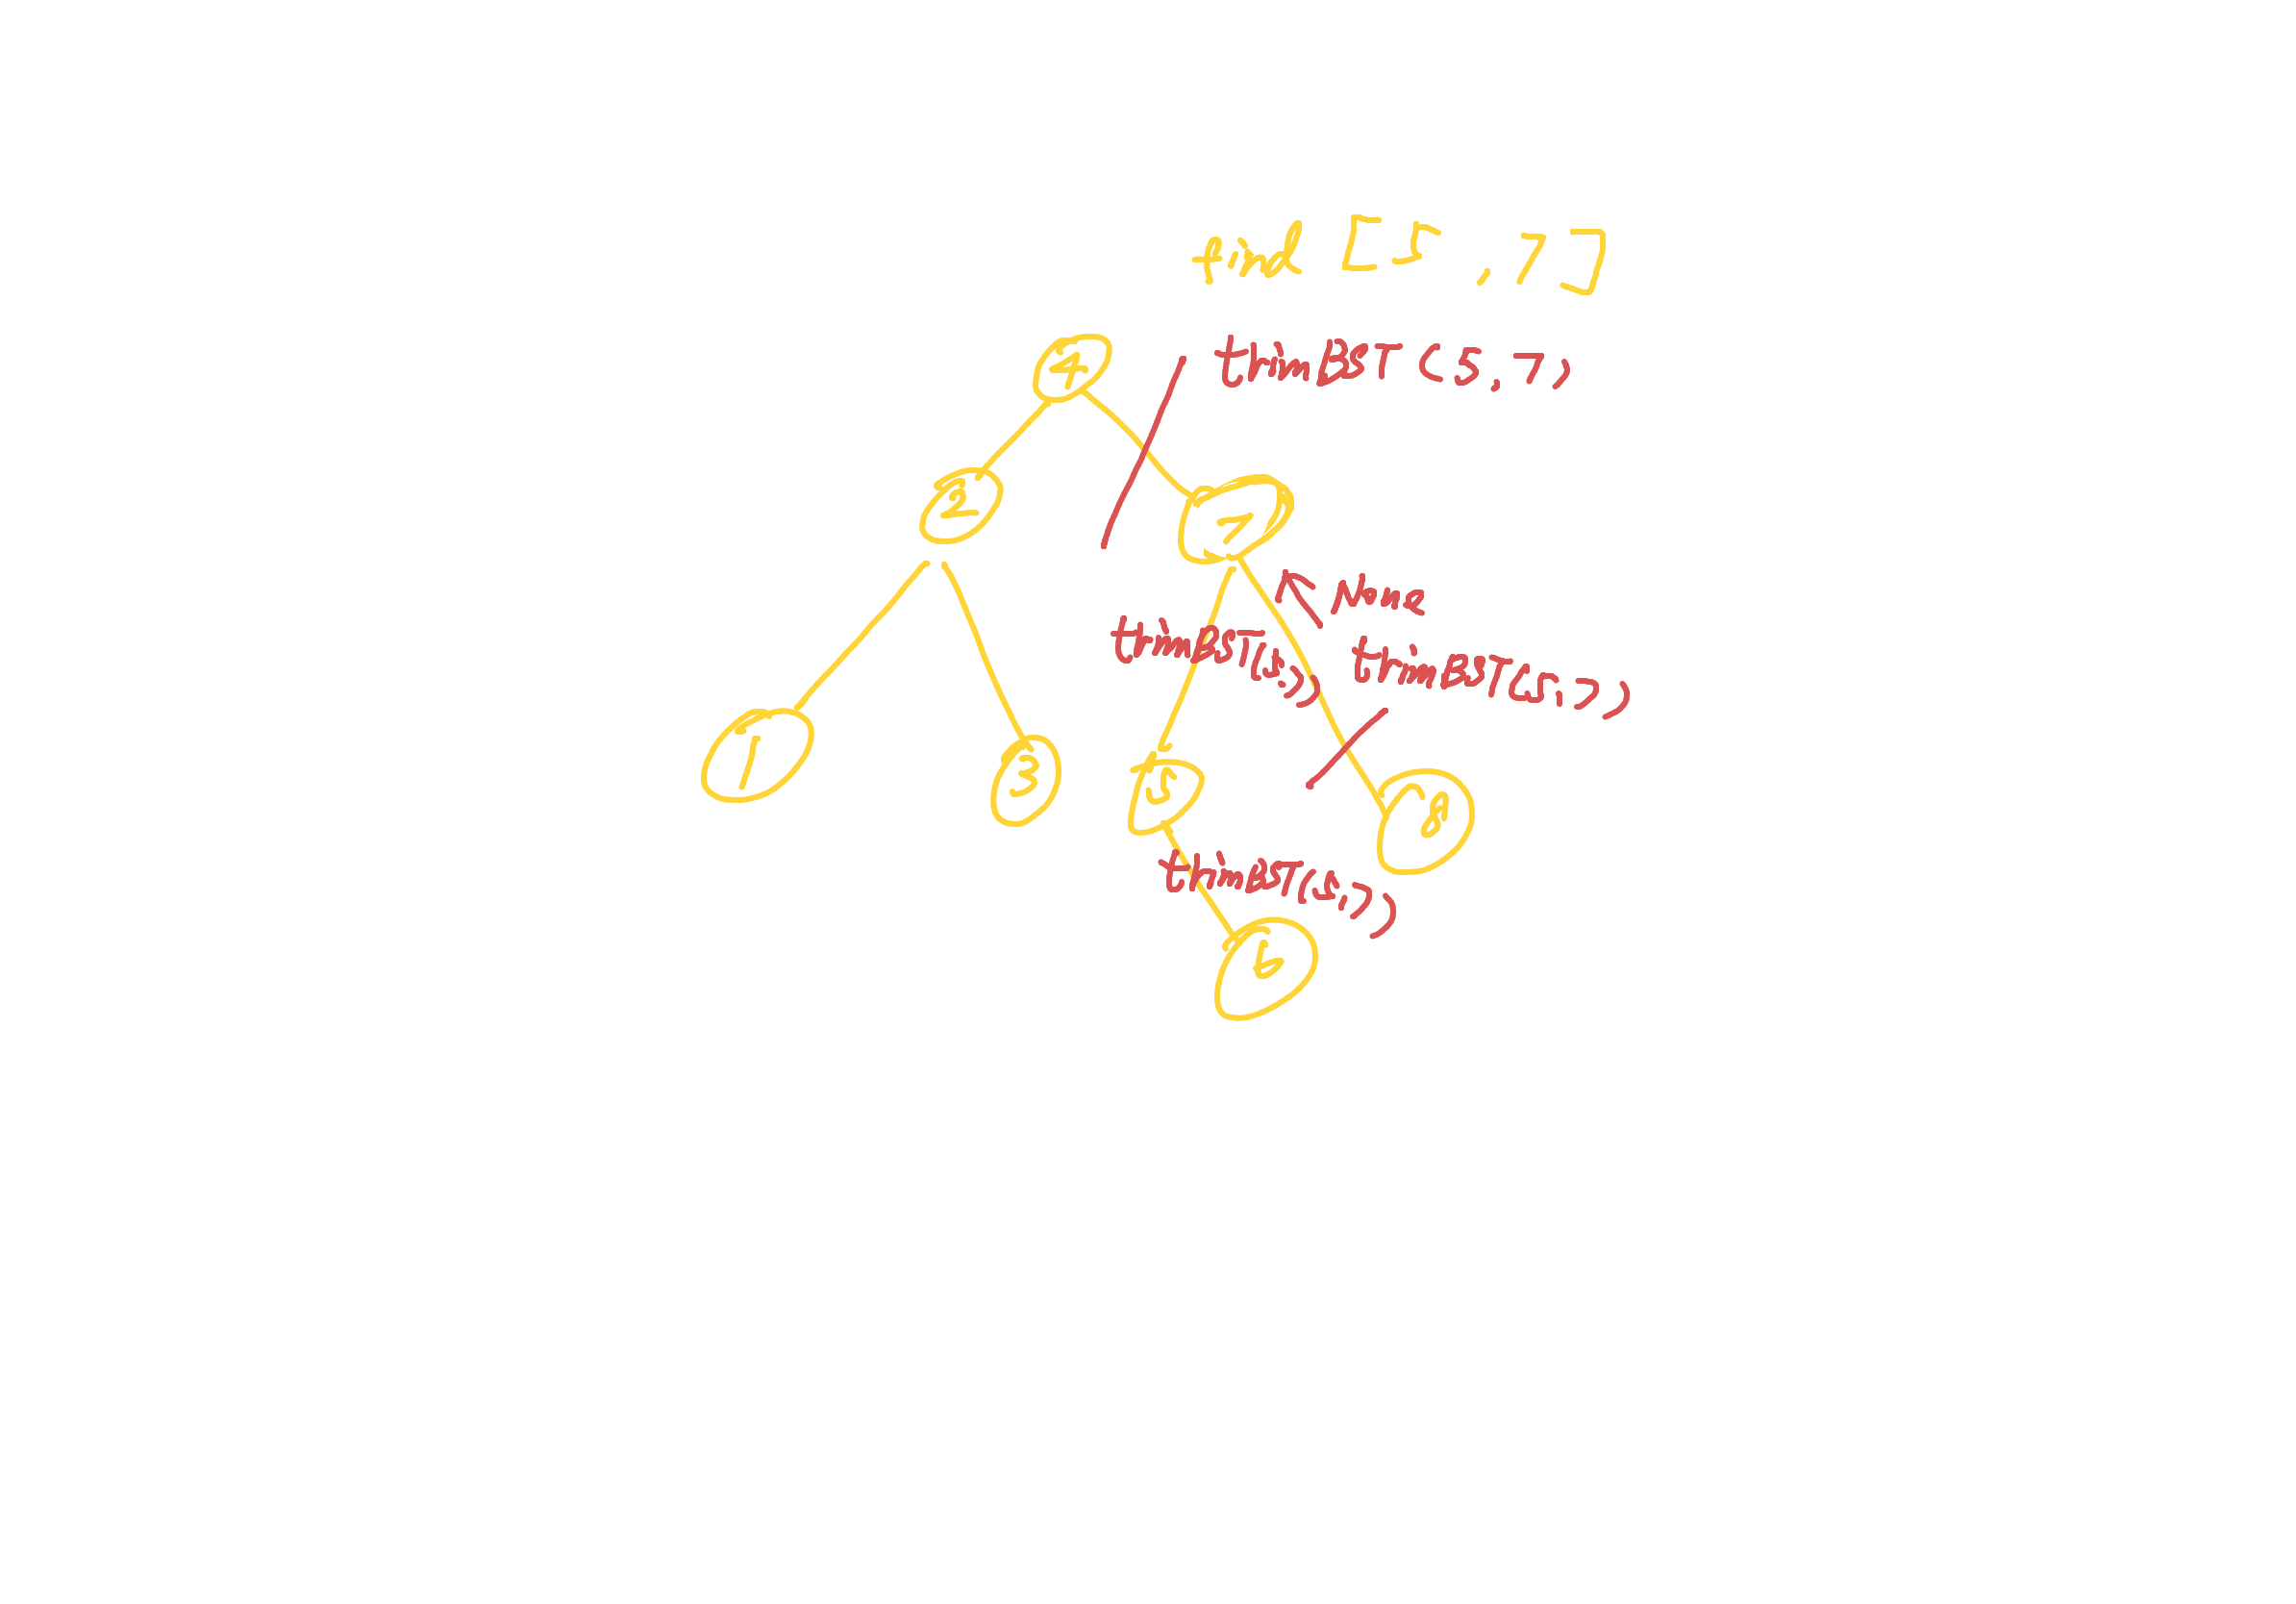 find [5, 7]
4
trimBST(5, 7)
2
7
None
trimBST(5,7)
trimBST(5,7)
1
3
5
8
trimBST(5,7)
6